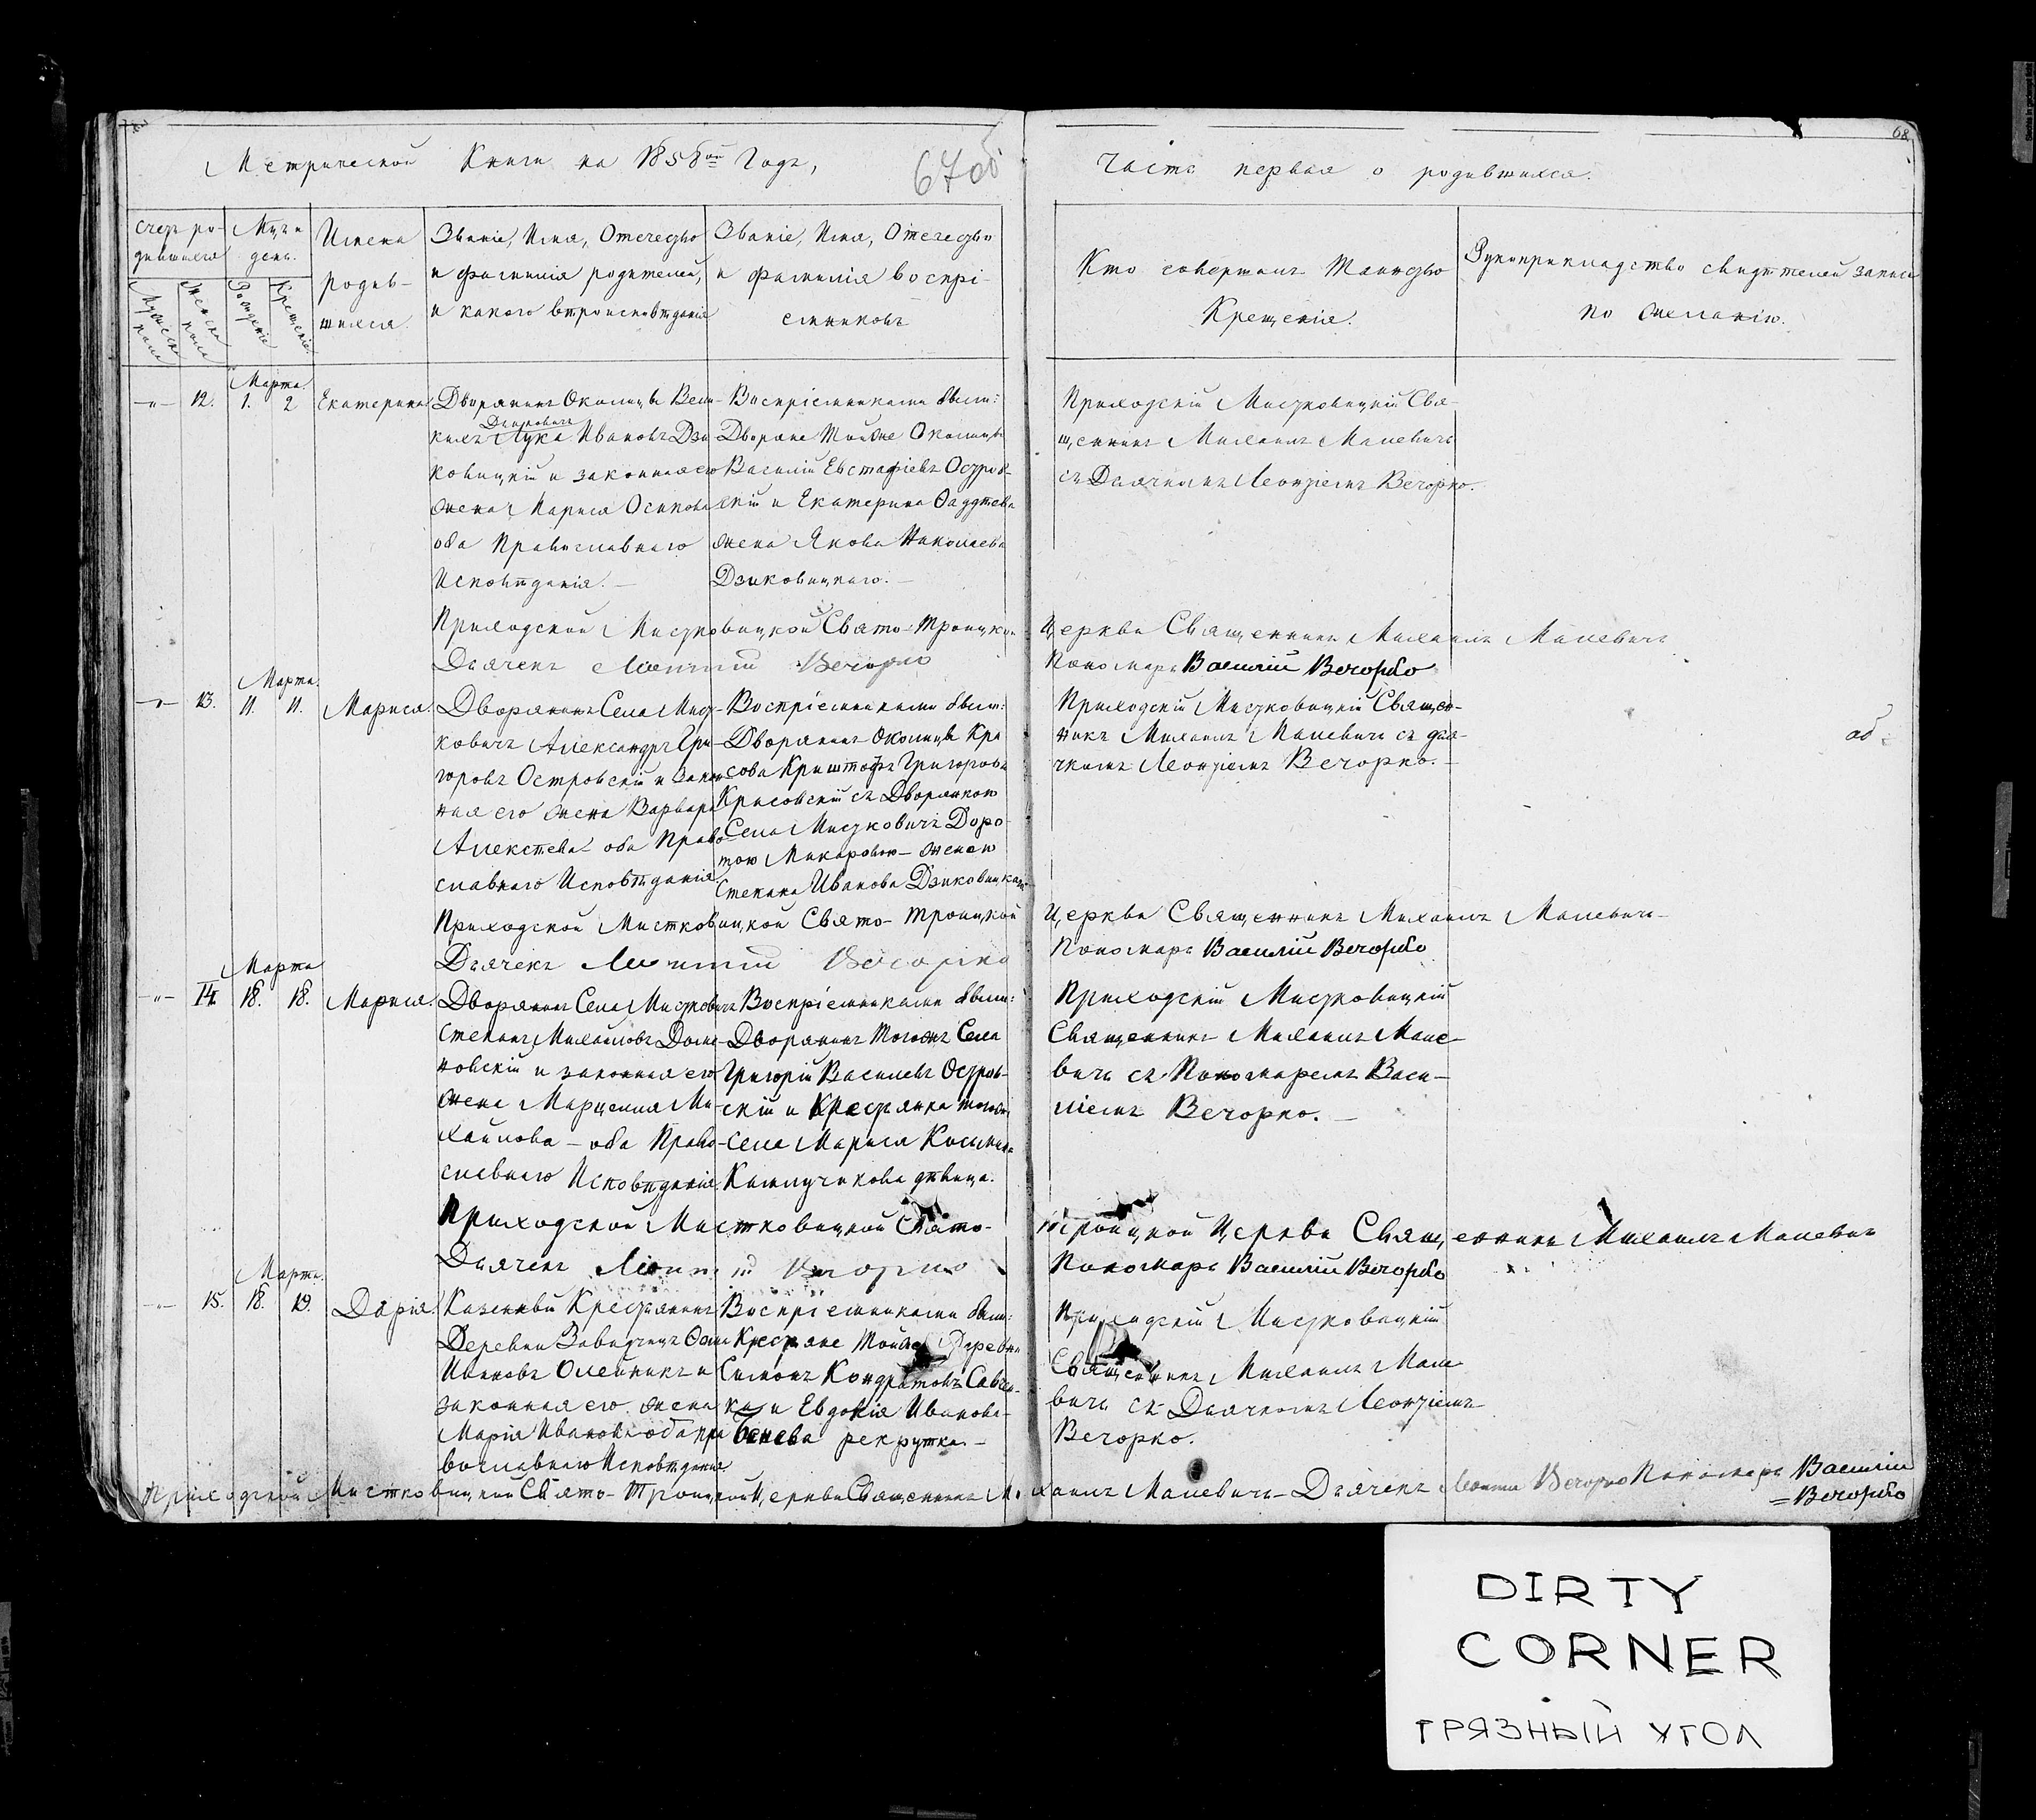 Метрической Книги на 1858ой Годъ,
67об
Часть первая о родившихся.
68
Счетъ ро-
дившихся
Мужеска
пола
Женска
пола
Мцъ и
день.
Рожденіе
Крещеніе.
Имена
родив-
шихся
Званіе, Имя, Отечество
и фамилія родителей,
и какого вѣроисповѣданія
Званіе, Имя, Отечество
и фамилія воспрі-
емниковъ
Кто совершалъ Таинство
Крещенія.
Рукоприкладство свидѣтелей записи
по желанію.
Марта
-"- 12. 1. 2 Екатерина
Дворянинъ Околицы Вели-
Дмитровичъ
кихъ Лука Ивановъ Дзи
ковицкій и законная его
жена Марыся Осипова
оба Православнаго
Исповѣданія. —
Воспріемниками были:
Дворяне Тойже Околицы
Василій Евстафіевъ Остров-
скій и Екатерина Фаддѣева
жена Якова Николаева
Дзиковицкаго. —
Приходскій Мисятковицкій Свя-
щенникъ Михаилъ Малевичъ
съ Дьячкомъ Леонтіемъ Вечорко.
Приходской Мистковицкой Свято-Троицкой Церкви Священникъ Михаилъ Малевичъ
Дьячекъ Леонтій Вечорко Пономарь Василій Вечорко
Марта.
-"- 13. 11. 11. Марыся.
Дворянинъ Села Мист-
ковичъ Александръ Гри-
горовъ Островскій и закон
ная его жена Варвара
Алексѣева — оба Право
славнаго Исповѣданія.
Воспріемниками были:
Дворянинъ Околицы Кра
сова Криштофъ Григоровъ
Красовскій съ Дворянкою
Села Мистковичъ Доро-
тою Макаровою — женою
Степана Иванова Дзиковицкаго
Приходскій Мистковицкій Священ-
никъ Михаилъ Малевичъ съ дья-
чкомъ Леонтіемъ Вечорко. —
об.
Приходской Мистковицкой Свято-Троицкой Церкви Священникъ Михаилъ Малевичъ
Дьячекъ Леонтій Вечорко Пономарь Василій Вечорко
Марта
-"- 14. 18. 18. Марыся.
Дворянинъ Села Мистковичъ
Степанъ Михайловъ Доли-
новскій и законная его
жена Марцелля Ми-
хайлова — оба Право-
славнаго Исповѣданія.
Воспріемниками были:
Дворянинъ Тогожъ Села
Григорій Васильевъ Остров-
скій и Крестьянка тогоже
Села Марыся Косьмина
Камлучикова дѣвица.
Приходскій Мистковицкій
Священникъ Михаилъ Мале-
вичъ съ Пономаремъ Васи-
ліемъ Вечорко. —
Приходской Мистковицкой Свято-Троицкой Церкви Священникъ Михаилъ Малевичъ
Дьячекъ Леонтій Вечорко Пономарь Василій Вечорко
Марта.
-"- 15. 18. 19. Дарія
Казенный Крестьянинъ
Деревни Завидчицъ
Ивановъ Олейникъ и
законная его жена
Марія Иванова оба пра
вославнаго Исповѣданія
Воспріемниками были:
Крестьяне Тойже Деревни
Симонъ Кондратовъ
и Евдокія Иванова
рекрутка. —
Приходскій Мистковицкій
Священникъ Михаилъ Мале-
вичъ съ Дьячкомъ Леонтіемъ
Вечорко.
Приходской Мистковицкой Свято-Троицкой Церкви Священникъ Михаилъ Малевичъ — Дьячекъ Леонтій Вечорко Пономарь Василій
=Вечорко
DIRTY
CORNER
ГРЯЗНЫЙ УГОЛ